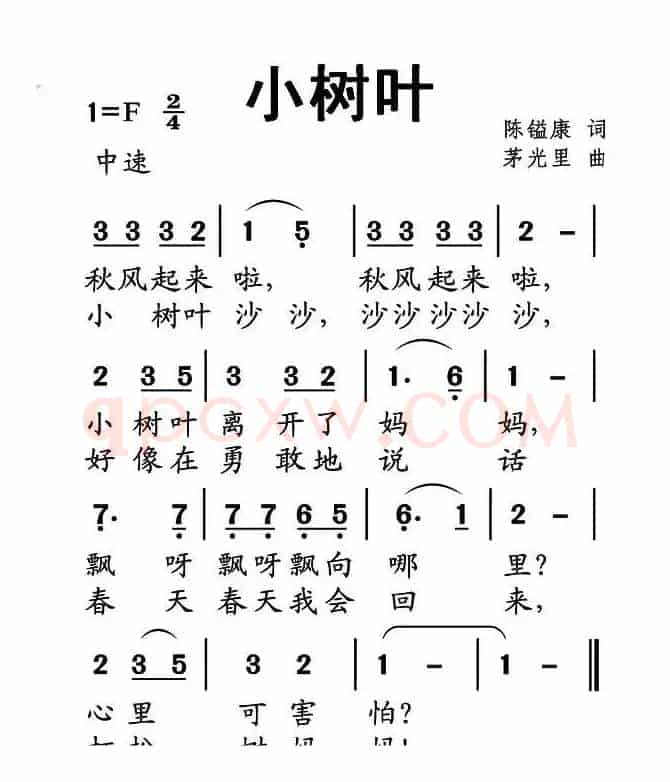 小树叶
1=F 2/4
陈镒康 词
中速
茅光里 曲
3 3 3 2 | 1 5 | 3 3 3 3 | 2 - |
秋风起来 啦, 秋风起来 啦,
小 树叶 沙 沙, 沙沙沙沙 沙,
2 3 5 | 3 3 2 | 1. 6 | 1 - |
小 树叶 离 开了 妈 妈,
好 像在 勇 敢地 说 话
qpcxw.COM
7. 7 | 7 7 6 5 | 6. 1 | 2 - |
飘 呀 飘呀飘向 哪 里?
春 天 春天我会 回 来,
2 3 5 | 3 2 | 1 - | 1 - ||
心里 可害 怕?